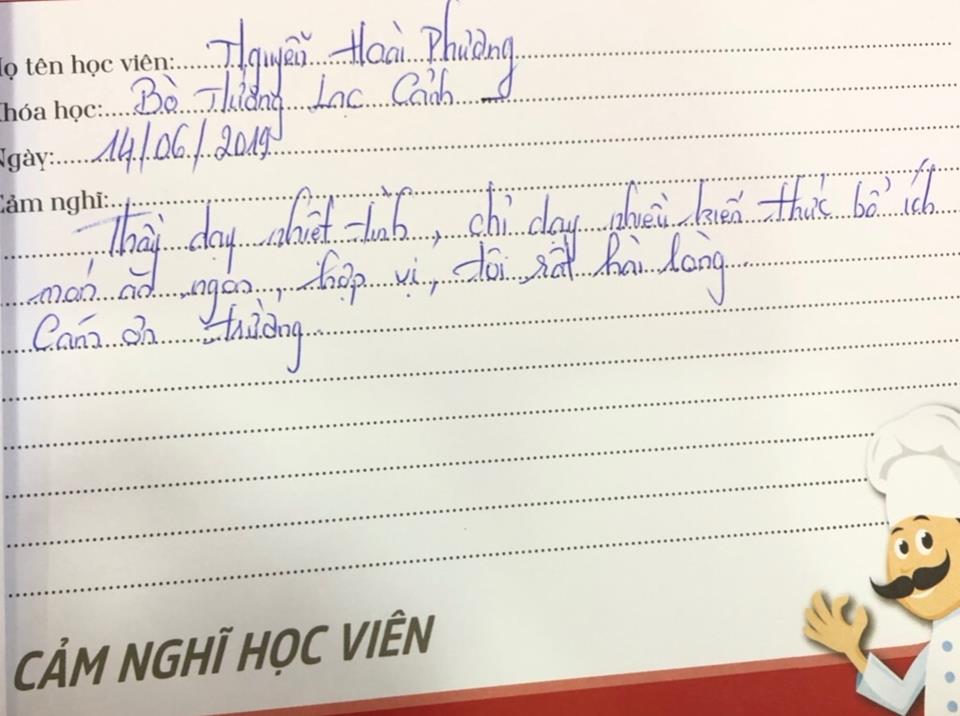 Họ tên học viên: Nguyễn Hoài Phương
Khóa học: Bò Tùng Lạc Cảnh
Ngày: 14/06/2019
Cảm nghĩ:
Thầy dạy nhiệt tình, chỉ dạy nhiều kiến thức bổ ích
món ăn ngon, hợp vị, tôi rất hài lòng.
Cám ơn trường.
CẢM NGHĨ HỌC VIÊN